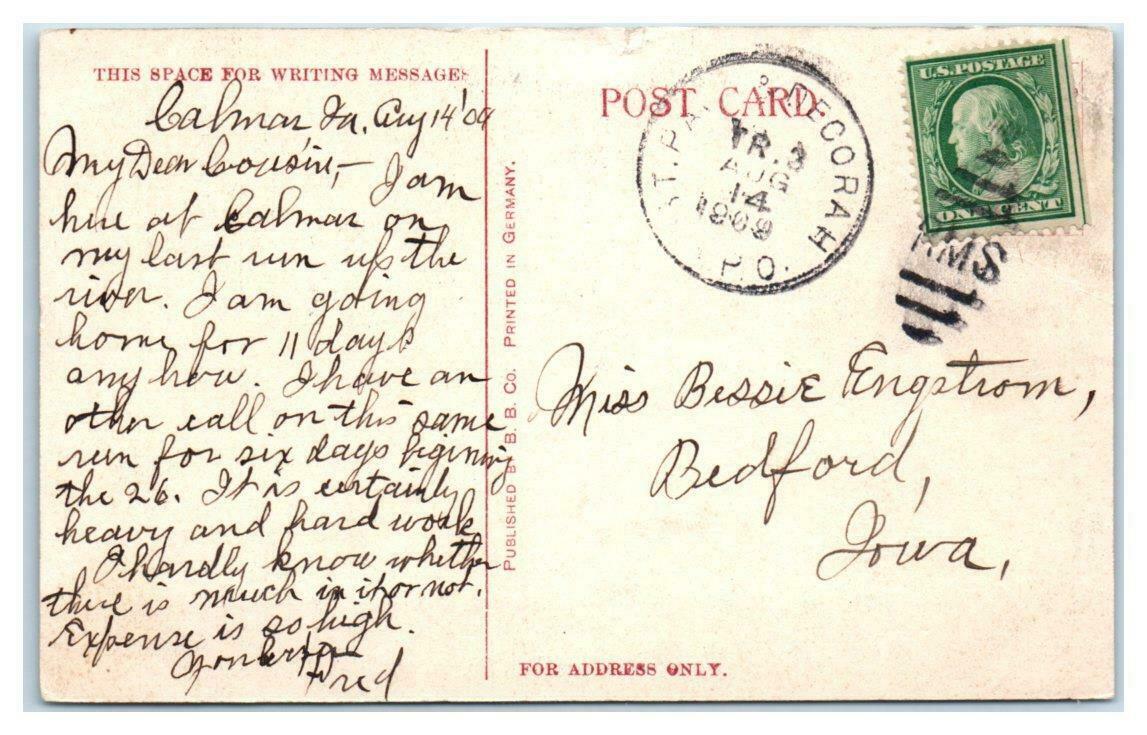 THIS SPACE FOR WRITING MESSAGES
Calmar Ia. Aug 14 '09
My Dear Cousin,-
I am
here at Calmar on
my last run up the
river. I am going
home for 11 days
any how. I have an
other call on this same
run for six days begining
the 26. It is certainly
heavy and hard work
I hardly know whether
there is much in it or not.
Expense is so high.
Fred
PUBLISHED BY B. B. Co. PRINTED IN GERMANY.
POST CARD.
ST. PAUL & DECORAH
TR. 3
AUG
14
1909
R.P.O.
U.S. POSTAGE
ONE CENT
RMS
Miss Bessie Engstrom,
Bedford,
Iowa,
FOR ADDRESS ONLY.